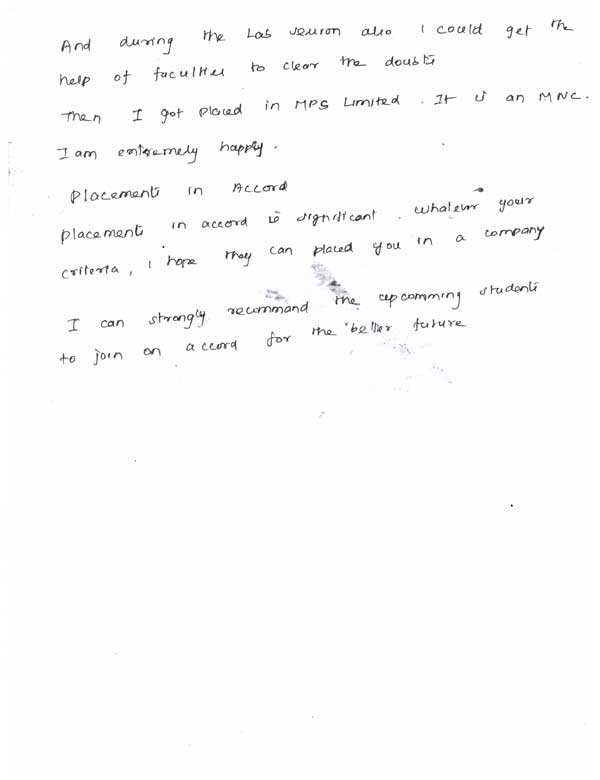 And during the Lab session also I could get the
help of faculties to clear the doubts
Then I got placed in MPS Limited. It is an MNC.
I am extremely happy.
Placements in Accord
Placements in accord is significant. whatever your
criteria, i hope they can placed you in a company
I can strongly recommand the upcomming students
to join on accord for the better future